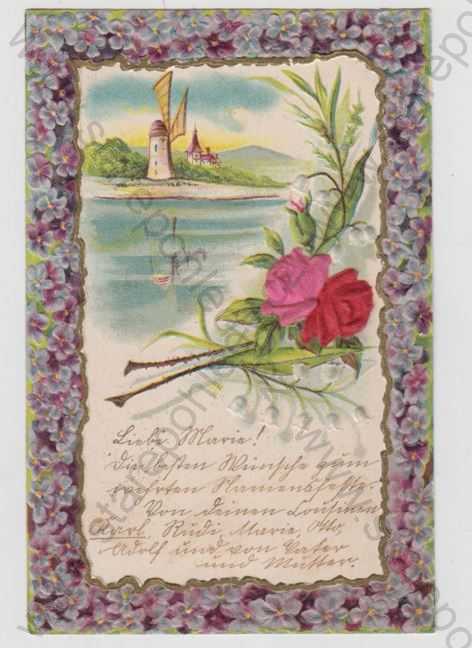 Liebe Marie!
Die besten Wünsche zum
werthen Namensfeste.
Von deinen Cousinen
Karl, Rudi, Marie, Otto,
Adolf und von Vater
und Mutter.